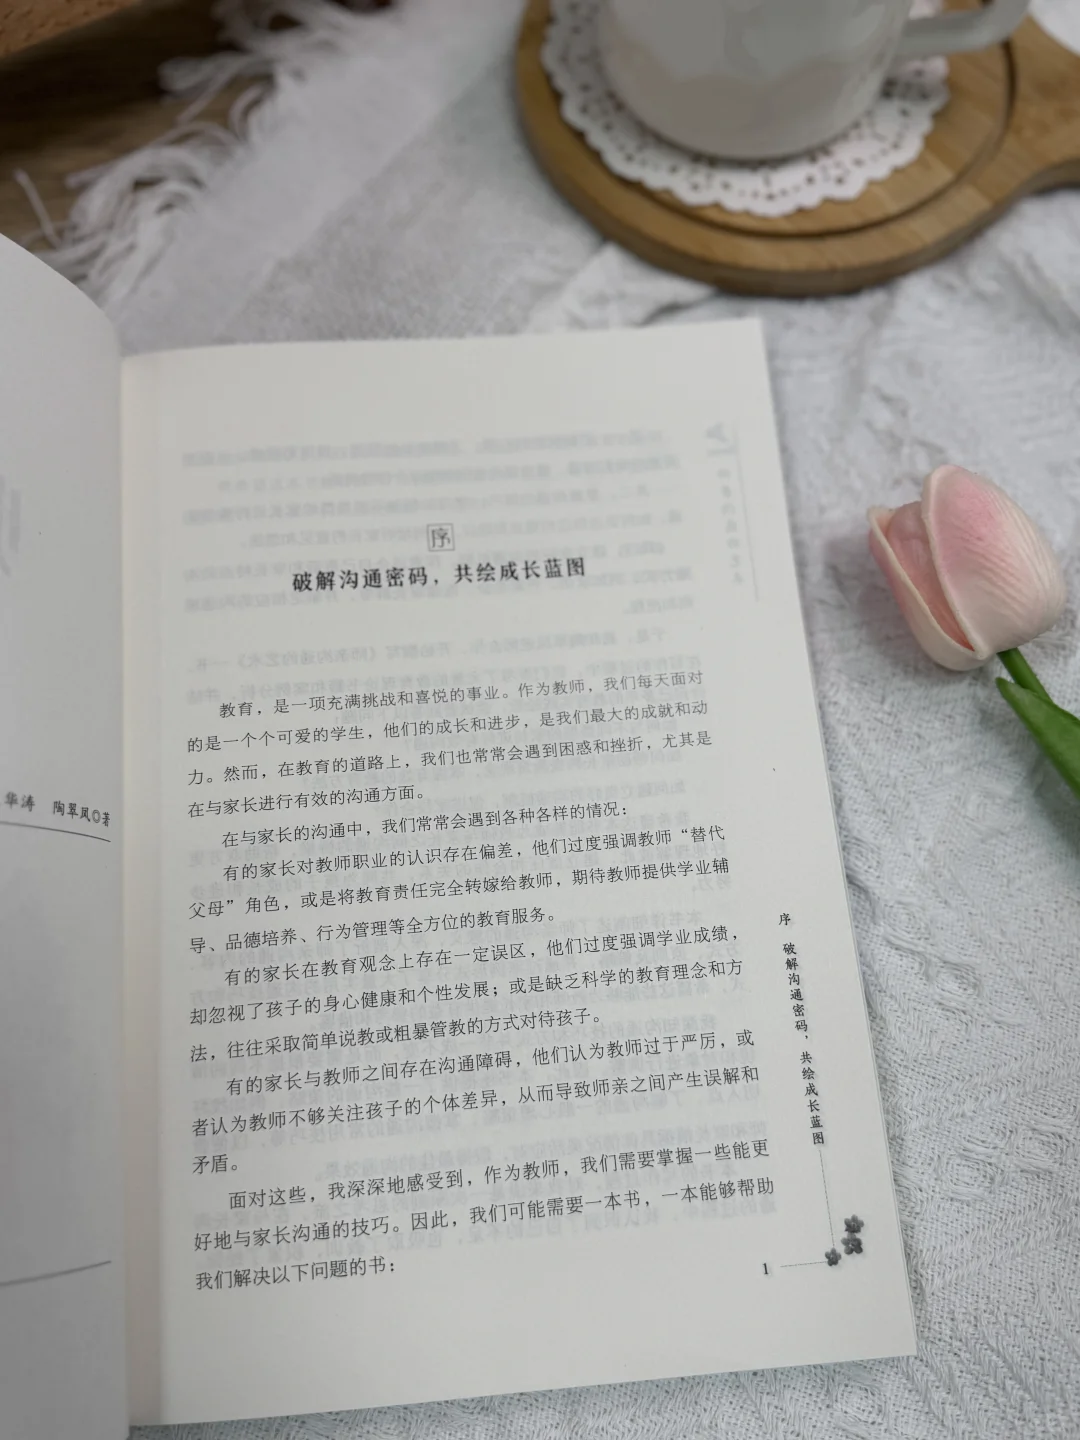 华涛 陶翠凤◎著
序
破解沟通密码，共绘成长蓝图
教育，是一项充满挑战和喜悦的事业。作为教师，我们每天面对
的是一个个可爱的学生，他们的成长和进步，是我们最大的成就和动
力。然而，在教育的道路上，我们也常常会遇到困惑和挫折，尤其是
在与家长进行有效的沟通方面。
在与家长的沟通中，我们常常会遇到各种各样的情况：
有的家长对教师职业的认识存在偏差，他们过度强调教师“替代
父母”角色，或是将教育责任完全转嫁给教师，期待教师提供学业辅
导、品德培养、行为管理等全方位的教育服务。
有的家长在教育观念上存在一定误区，他们过度强调学业成绩，
却忽视了孩子的身心健康和个性发展；或是缺乏科学的教育理念和方
法，往往采取简单说教或粗暴管教的方式对待孩子。
有的家长与教师之间存在沟通障碍，他们认为教师过于严厉，或
者认为教师不够关注孩子的个体差异，从而导致师亲之间产生误解和
矛盾。
面对这些，我深深地感受到，作为教师，我们需要掌握一些能更
好地与家长沟通的技巧。因此，我们可能需要一本书，一本能够帮助
我们解决以下问题的书：
序 破解沟通密码，共绘成长蓝图
1